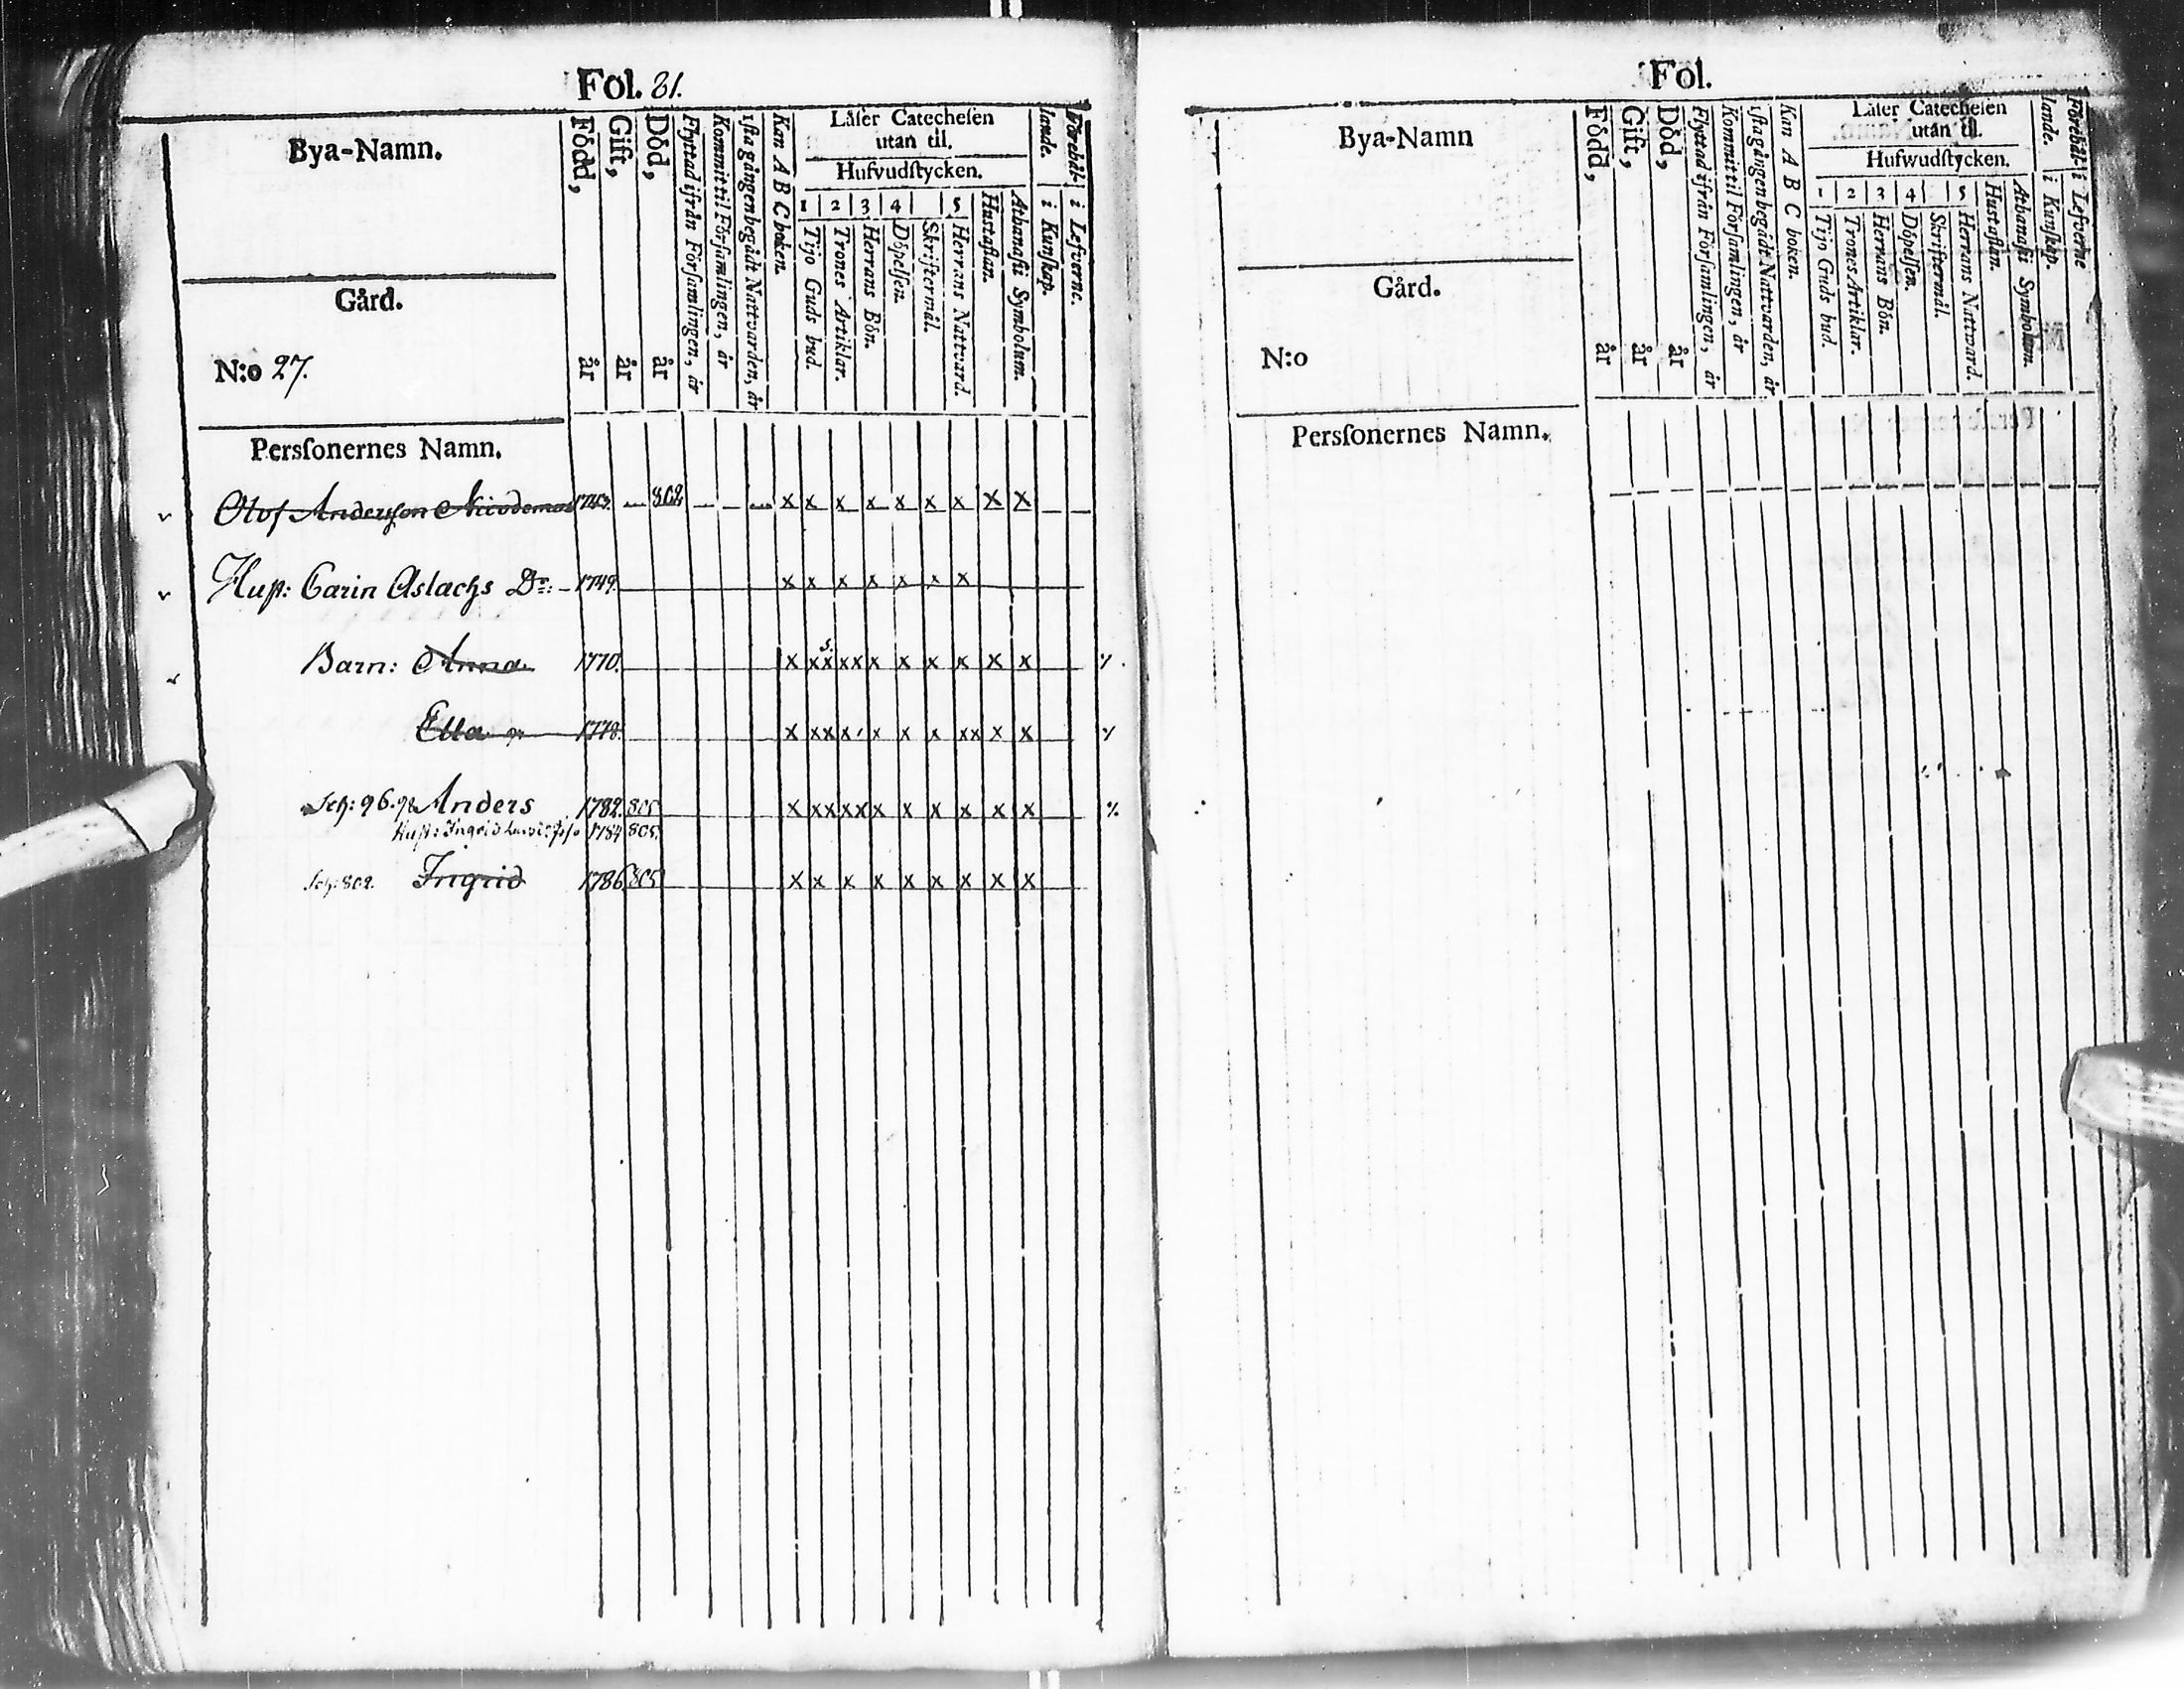 Fol. 81.
Bya-Namn.
Gård.
N:o 27.
Persſonernes Namn.
Född, år
Gift, år
Död, år
Flyttad ifrån Förſamlingen, år
Kommit til Förſamlingen, år
1ſta gången begådt Nattvarden, år
Kan A B C boken.
Läſer Catecheſen
utan til.
Hufvudſtycken.
1 2 3 4 5
Tijo Guds bud.
Trones Artiklar.
Herrans Bön.
Döpelſen.
Skriftermål.
Herrans Nattvard.
Huſtaflan.
Athanaſii Symbolum.
Förebål-
lande.
i Kunſkap.
i Lefverne.
Olof Andersson Nicodemus 1743. 802 x x x x x x x x x
Hust: Carin Aslachs Dr: 1749. x x x x x x x
Barn: Anna 1770. x xx xx x x x x x x
Ella 1778. x xx x x x x xx x x
Sch: 96. 98 Anders 1782. 805 x xx xx x x x x x x
Hust: Ingrid 1784 805.
Sch: 802. Ingrid 1786 805 x x x x x x x x x
Fol.
Bya-Namn
Gård.
N:o
Persſonernes Namn.
Född, år
Gift, år
Död, år
Flyttad ifrån Förſamlingen, år
Kommit til Förſamlingen, år
1ſta gången begådt Nattvarden, år
Kan A B C boken.
Läſer Catecheſen
utan til.
Hufwudſtycken.
1 2 3 4 5
Tijo Guds bud.
Trones Artiklar.
Herrans Bön.
Döpelſen.
Skriftermål.
Herrans Nattward.
Huſtaflan.
Athanaſii Symbolum.
Förebål-
lande.
i Kunſkap.
i Lefverne